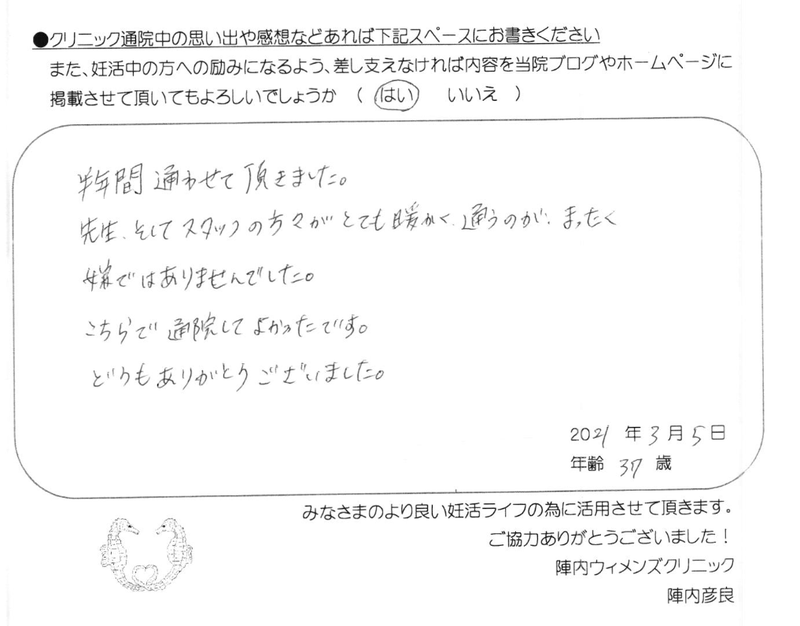 ●クリニック通院中の思い出や感想などあれば下記スペースにお書きください
また、妊活中の方への励みになるよう、差し支えなければ内容を当院ブログやホームページに
掲載させて頂いてもよろしいでしょうか （ はい いいえ ）
半年間 通わせて頂きました。
先生、そしてスタッフの方々がとても暖かく、通うのが、まったく
嫌ではありませんでした。
こちらで通院してよかったです。
どうもありがとうございました。
2021 年 3 月 5 日
年齢 37 歳
みなさまのより良い妊活ライフの為に活用させて頂きます。
ご協力ありがとうございました！
陣内ウィメンズクリニック
陣内彦良